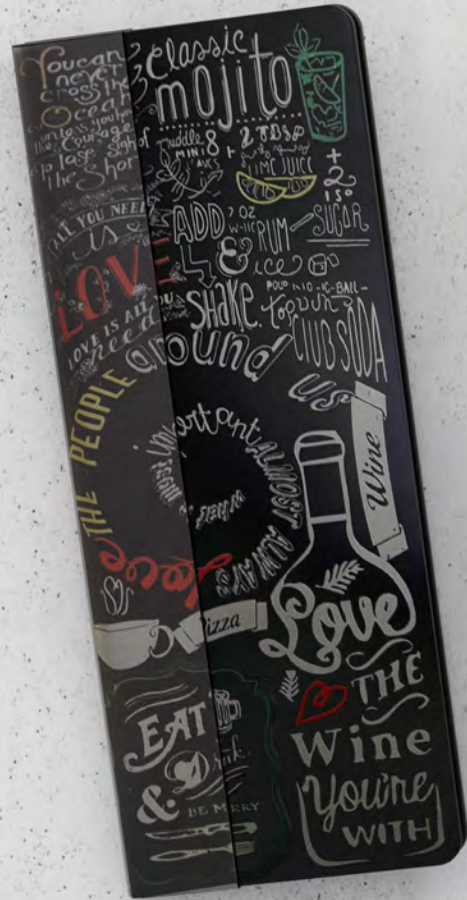 You can
never
cross the
Ocean
unless you have
the Courage of
to lose Sight
the Shor
ALL YOU NEED
is
LOVE
LOVE IS ALL YOU
need
Classic
mojito
muddle 8
MINT
+ 2 TBSP
LIME JUICE
+
2
TBSP
SUGAR
ADD 2 OZ
WHITE RUM
& ice
Shake.
POUR INTO HIGHBALL
top with
CLUB SODA
THE PEOPLE around us
Love
most important ALMOST ALWAYS
Wine
Pizza
Love
THE
Wine
You're
WITH
EAT
Drink
&
BE MERRY